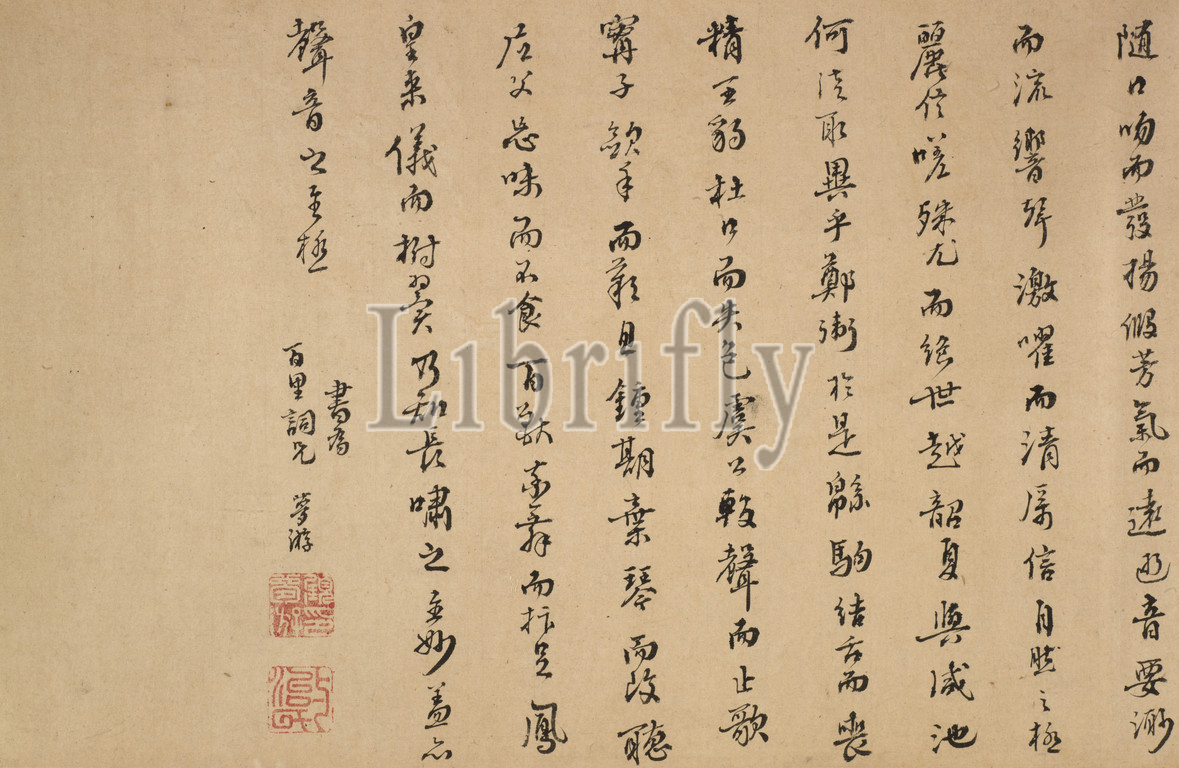 隨口吻而發揚假芳氣而遠逝音要渺
而流響聲激嚁而清厲信自然之極
麗侈嗟殊尤而絕世越韶夏與咸池
何徒取異乎鄭衛於是緜駒結舌而喪
精王豹杜口而失色虞公輟聲而止歌
甯子斂手而歎息鍾期棄琴而改聽
尼父忘味而不食百獸率舞而抃足鳳
皇來儀而樹翼乃知長嘯之至妙蓋亦
聲音之至極
書為
百里詞兄 夢游
Librifly